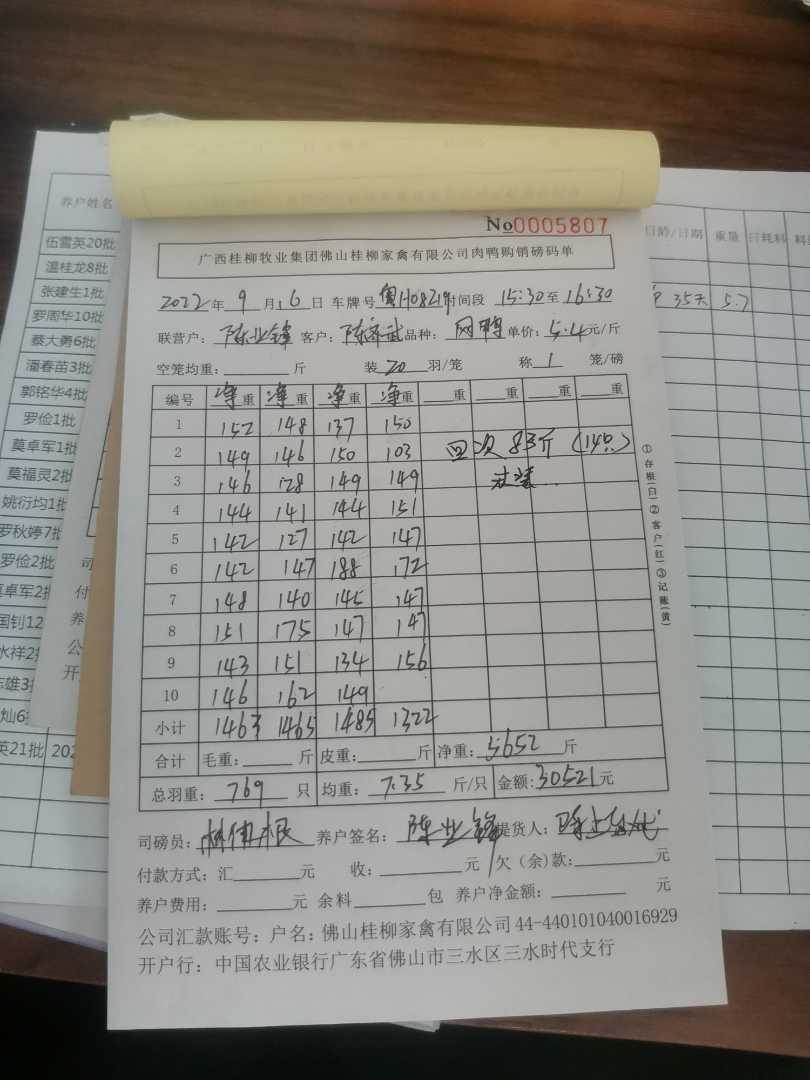 No0005807
广西桂柳牧业集团佛山桂柳家禽有限公司肉鸭购销磅码单
2022年 9 月 16 日 车牌号 粤H08219 时间段 15:30 至 16:30
联营户: 陈业锋 客户: 陈齐武 品种: 网鸭 单价: 5.4 元/斤
空笼均重: 斤 装 20 羽/笼 称 1 笼/磅
编号 净重 净重 净重 净重 重 重 重 重
1 152 148 137 150
2 149 146 150 103 回次83斤(14只)
3 146 128 149 149
4 144 141 144 151
5 142 127 142 147
6 142 147 188 172
7 148 140 145 147
8 151 175 147 147
9 143 151 134 156
10 146 162 149
小计 1463 1465 1485 1322
合计 毛重: 斤 皮重: 斤 净重: 5652 斤
总羽重: 769 只 均重: 7.35 斤/只 金额: 30521元
司磅员: 林伟根 养户签名: 陈业锋 提货人:
付款方式: 汇 元 收: 元 欠(余)款: 元
养户费用: 元 余料 包 养户净金额: 元
公司汇款账号: 户名: 佛山桂柳家禽有限公司 44-440101040016929
开户行: 中国农业银行广东省佛山市三水区三水时代支行
①存根(白)②客户(红)③记账(黄)
养户姓名
伍雪英20批
温桂龙8批
张建生1批
罗周华10批
蔡大勇6批
潘春苗3批
郭铭华4批
罗俭1批
莫卓军1批
莫福灵2批
姚衍均1批
罗秋婷7批
罗俭2批
莫卓军2批
国钊12
水祥2批
志雄3批
灿6批
英21批 202
司
付
养
公
开
日龄/日期 重量 日耗料 料
35天 5.7